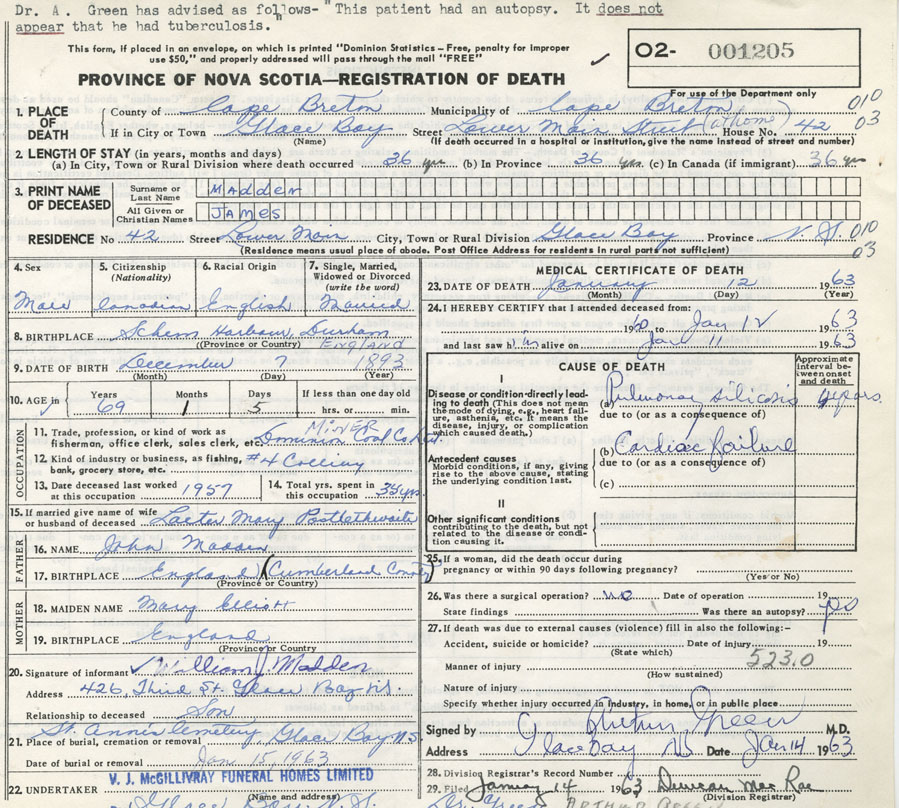 Dr. A. Green has advised as follows- "This patient had an autopsy. It does not
appear that he had tuberculosis."
This form, if placed in an envelope, on which is printed "Dominion Statistics – Free, penalty for improper
use $50," and properly addressed will pass through the mail "FREE"
O2- 001205
PROVINCE OF NOVA SCOTIA—REGISTRATION OF DEATH
For use of the Department only
1. PLACE OF DEATH County of Cape Breton Municipality of Cape Breton 010
If in City or Town Glace Bay Street Lower Main Street (at home) House No. 42 03
(Name) (If death occurred in a hospital or institution, give the name instead of street and number)
2. LENGTH OF STAY (in years, months and days)
(a) In City, Town or Rural Division where death occurred 36 yrs (b) In Province 36 yrs. (c) In Canada (if immigrant) 36 yrs
3. PRINT NAME OF DECEASED
Surname or Last Name Madden
All Given or Christian Names James
RESIDENCE No 42 Street Lower Main City, Town or Rural Division Glace Bay Province N.S. 010
(Residence means usual place of abode. Post Office Address for residents in rural parts not sufficient) 03
4. Sex
5. Citizenship (Nationality)
6. Racial Origin English
7. Single, Married, Widowed or Divorced (write the word) Married
8. BIRTHPLACE Harbour, Durham
(Province or Country) ENGLAND
9. DATE OF BIRTH December 7 1893
(Month) (Day) (Year)
10. AGE in Years Months Days If less than one day old
69 1 5 hrs. or min.
OCCUPATION
11. Trade, profession, or kind of work as MINER
fisherman, office clerk, sales clerk, etc. Dominion Coal Co Ltd.
12. Kind of industry or business, as fishing, #4 Colliery
bank, grocery store, etc.
13. Date deceased last worked at this occupation 1957
14. Total yrs. spent in this occupation 35 yrs.
15. If married give name of wife or husband of deceased Mary Postlethwaite
FATHER
16. NAME John Madden
17. BIRTHPLACE England (Cumberland County)
(Province or Country)
MOTHER
18. MAIDEN NAME Mary Elliott
19. BIRTHPLACE England
(Province or Country)
20. Signature of informant William J. Madden
Address 426, Third St. Glace Bay N.S.
Relationship to deceased Son
St. Ann's Cemetery, Glace Bay N.S.
21. Place of burial, cremation or removal
Date of burial or removal Jan 15, 1963
V. J. McGILLIVRAY FUNERAL HOMES LIMITED
22. UNDERTAKER
(Name and address)
Glace Bay N.S.
MEDICAL CERTIFICATE OF DEATH
23. DATE OF DEATH January 12 1963
(Month) (Day) (Year)
24. I HEREBY CERTIFY that I attended deceased from:
1960 to Jan 12 1963
and last saw him alive on Jan 11 1963
CAUSE OF DEATH
Approximate interval between onset and death
I
Disease or condition directly leading to death (This does not mean the mode of dying, e.g., heart failure, asthenia, etc. It means the disease, injury, or complication which caused death.)
(a) Pulmonary silicosis years.
due to (or as a consequence of)
Antecedent causes
Morbid conditions, if any, giving rise to the above cause, stating the underlying condition last.
(b) Cardiac failure
due to (or as a consequence of)
(c)
II
Other significant conditions
contributing to the death, but not related to the disease or condition causing it.
25. If a woman, did the death occur during
pregnancy or within 90 days following pregnancy?
(Yes or No)
26. Was there a surgical operation? no Date of operation 19
State findings Was there an autopsy? yes
27. If death was due to external causes (violence) fill in also the following:–
Accident, suicide or homicide? Date of injury 19
(State which) 523.0
Manner of injury
(How sustained)
Nature of injury
Specify whether injury occurred in industry, in home, or in public place
Signed by Arthur Green M.D.
Address Glace Bay NS Date Jan 14 1963
28. Division Registrar's Record Number
29. Filed January 14 1963 Duncan MacRae
(Division Registrar)
Dr. Green ARTHUR GREEN